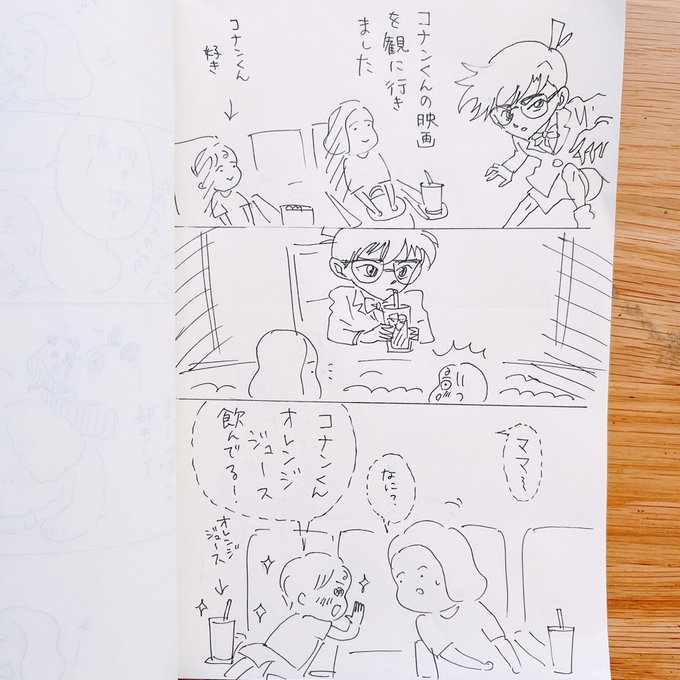 コナンくんの映画
を観に行き
ました
コナンくん
好き
ママ〜
なに？
コナンくん
オレンジ
ジュース
飲んでる！
オレンジ
ジュース